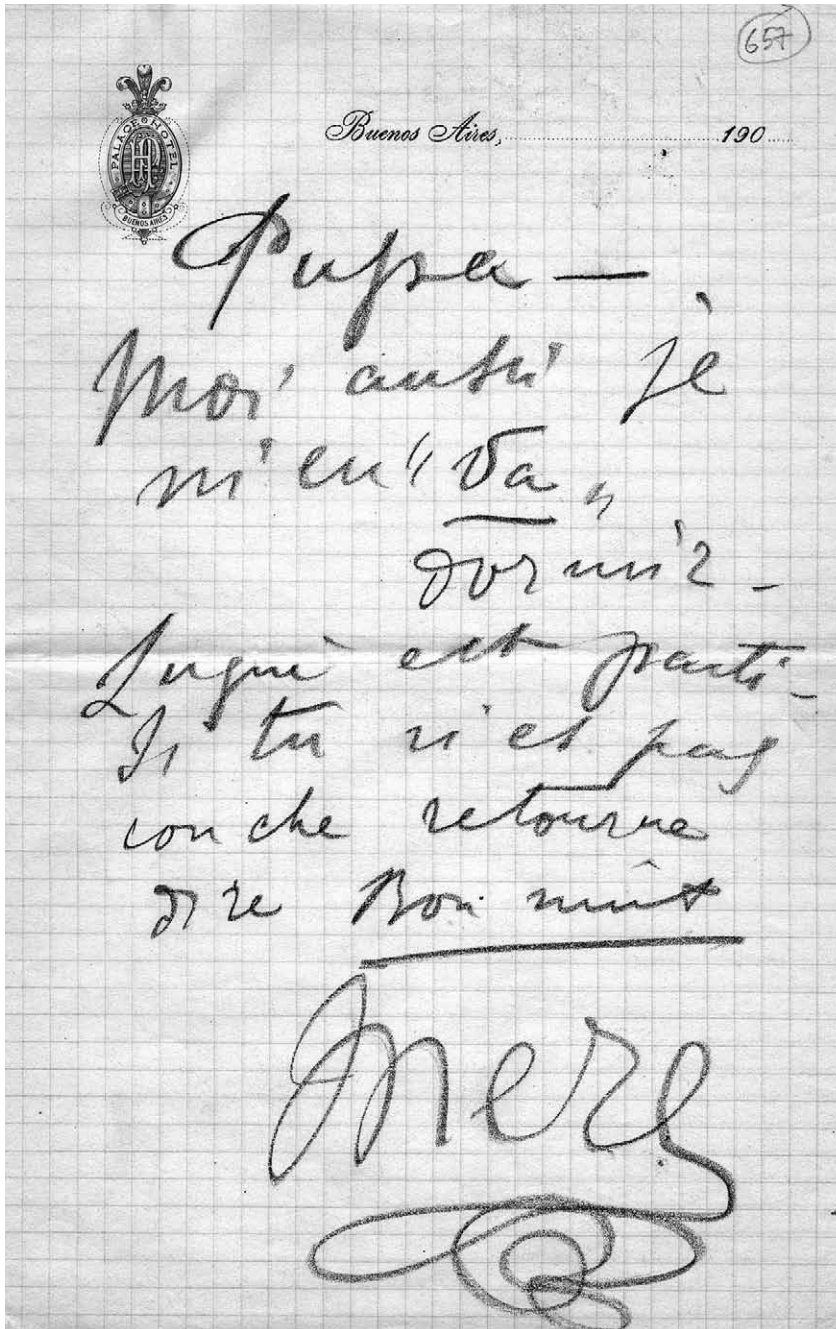 657
PALACE HOTEL
BUENOS AIRES
Buenos Aires, 190
Pupa —
Moi aussi je
m'en "va"
dormir -
Lugné est parti -
Si tu n'es pas
couche retourne
dire Bon nuit
Mere